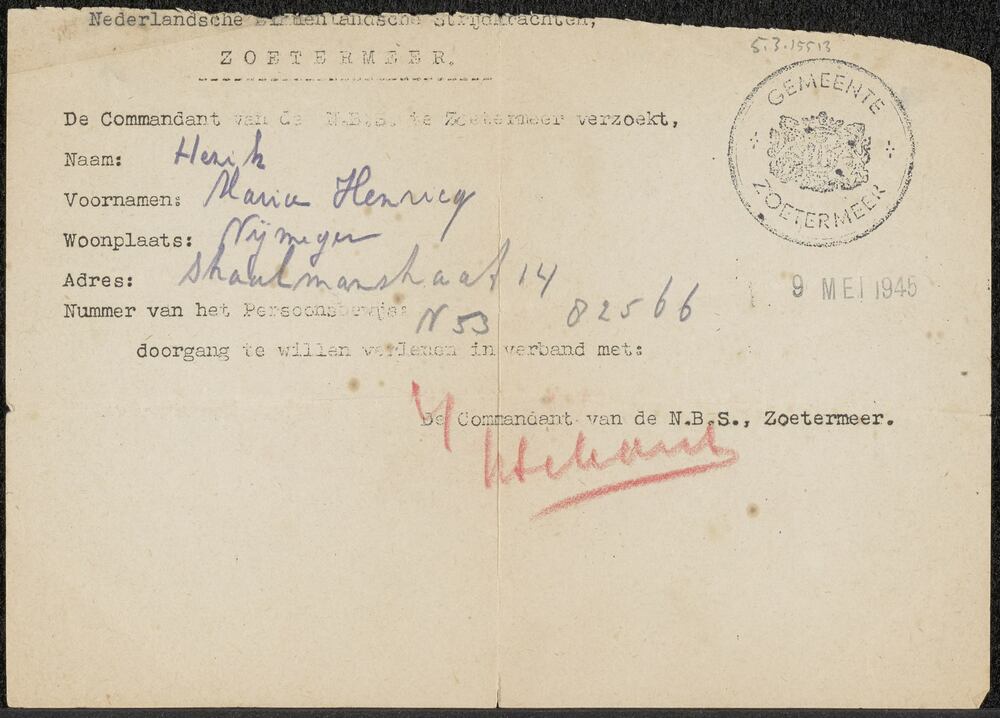 Nederlandsche Binnenlandsche Strijdkrachten,
5.3.15513
ZOETERMEER.
GEMEENTE ZOETERMEER
De Commandant van de N.B.S. te Zoetermeer verzoekt,
Naam:
Voornamen: Maria Henricq
Woonplaats: Nijmegen
Adres: 14
9 MEI 1945
Nummer van het Persoonsbewijs: N 53 82566
doorgang te willen verlenen in verband met:
De Commandant van de N.B.S., Zoetermeer.